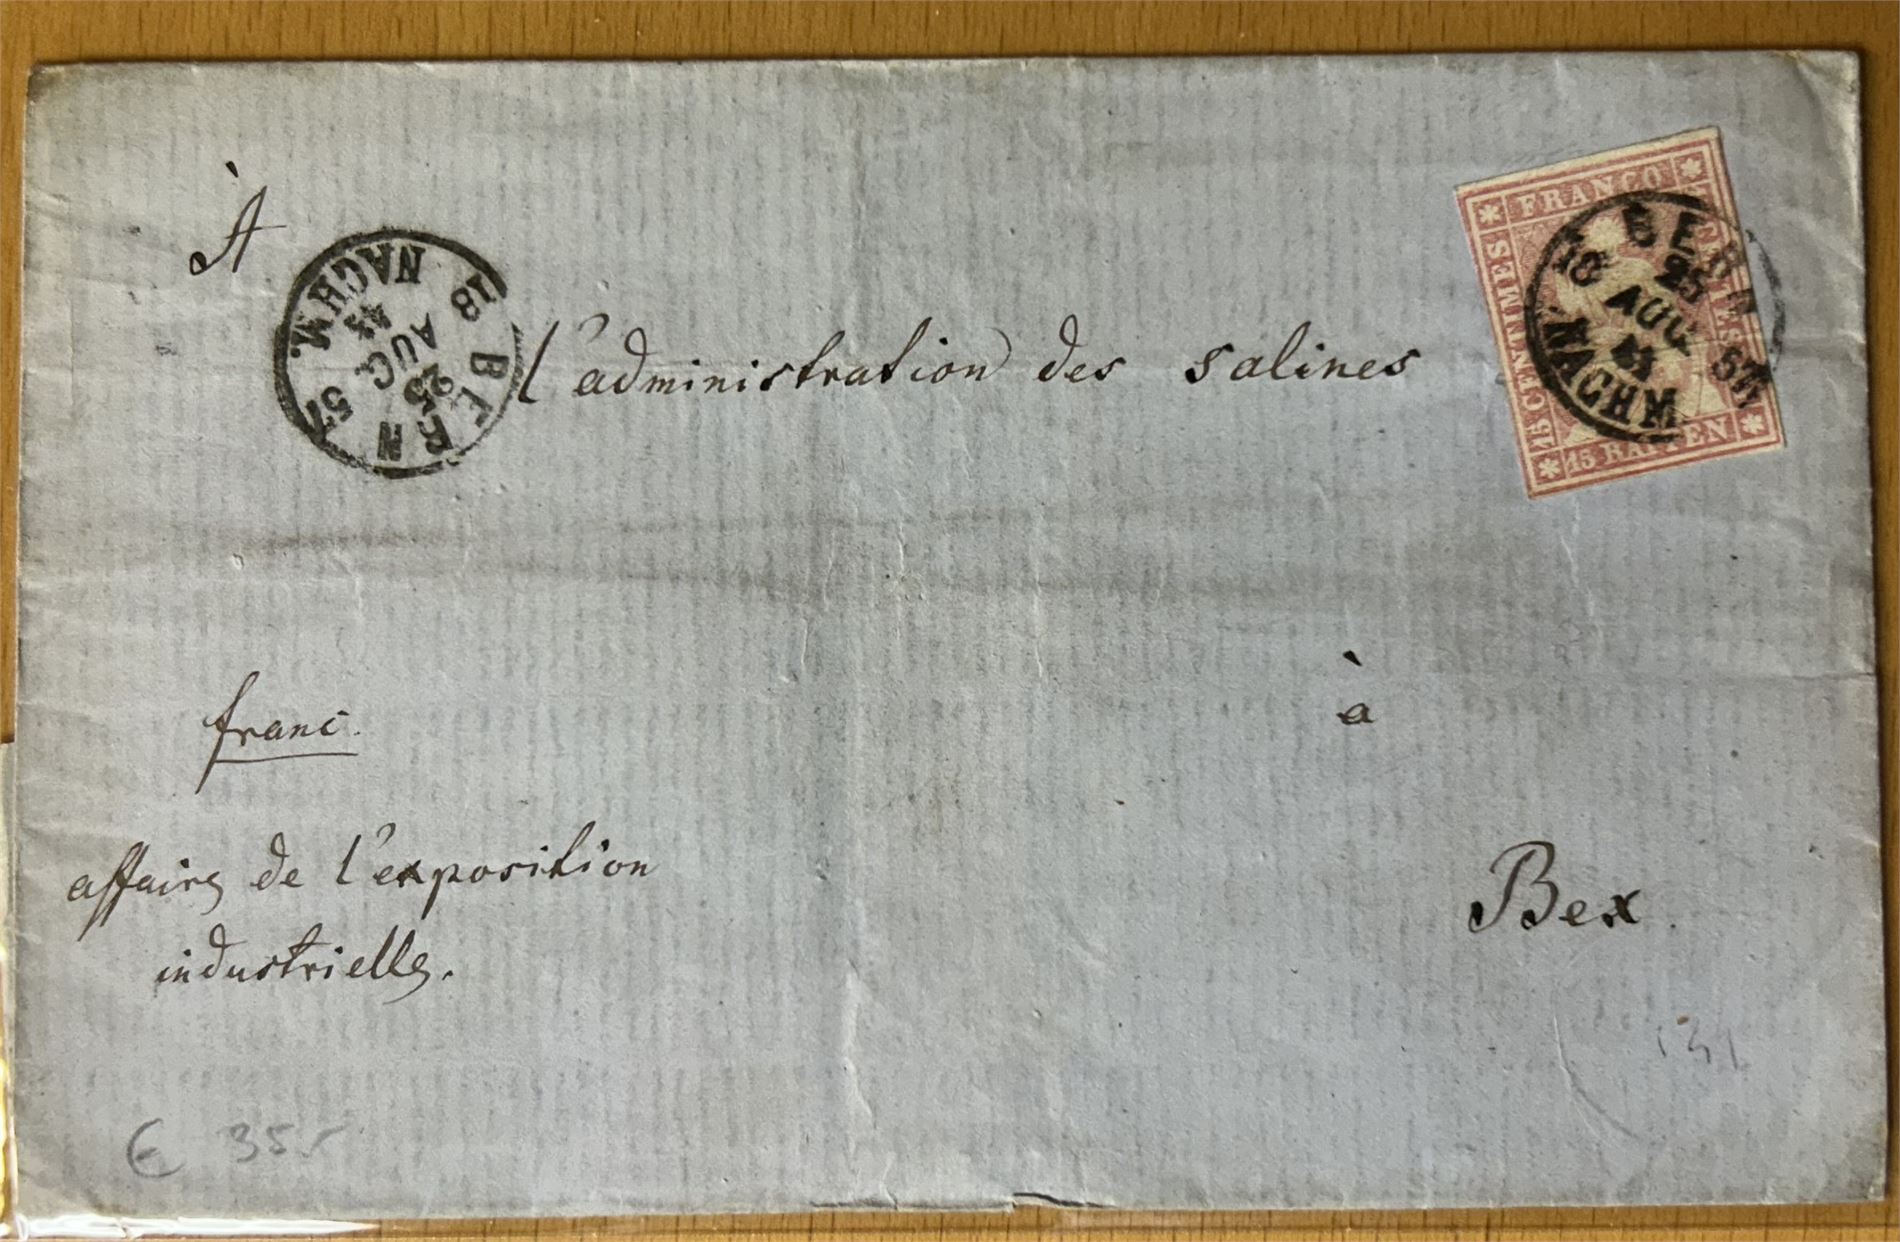 À
l'administration des salines
à
Bex.
franc.
affaires de l'exposition
industrielle.
18 BERN 57
25
AUG.
NACHM.
FRANCO
15 CENTIMES
15 RAPPEN
BERN
18 57
25
AUG
NACHM
€ 35.-